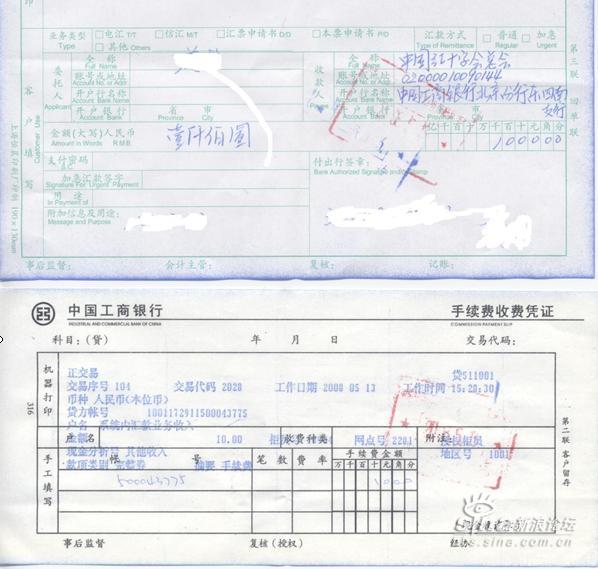 业务类型 Type □电汇 T/T □信汇 M/T □汇票申请书 D/D □本票申请书 P/D 汇款方式 Type of Remittance □普通 Regular □加急 Urgent
□其他 Others
委托人 Applicant 全称 Full Name 收款人 全称 Full Name 中国红十字会总会
账号或地址 Account No. or Addr 账号或地址 Account No. or Addr 0200001009014
开户行名称 Account Bank Name 开户行名称 Account Bank Name 中国工商银行北京分行东四南支行
开户银行 Account Bank 省 市 开户银行 Account Bank 省 市
金额(大写)人民币 Amount in Words R.M.B. 壹仟 圆 亿千百十万千百十元角分 100000
支付密码 付出行签章:
加急汇款签字 Signature For Urgent Payment Bank Authorized Signature and Stamp
用途 In Payment of
附加信息及用途: Message and Purpose
事后监督: 会计主管: 复核: 记账:
客户填写 Customer Use
第三联
中国工商银行 手续费收费凭证
INDUSTRIAL AND COMMERCIAL BANK OF CHINA COMMISSION PAYMENT SLIP
科目:(贷) 年 月 日 交易代码:
机器打印
正交易 贷511001
交易序号 104 交易代码 2028 工作日期 2008 05 13 工作时间 15:28:30
币种 人民币(本位币)
贷方帐号 1001172911500043775
户名 系统内汇款业务收入
金额 10.00 网点号 附注:
户名 收费种类
现金分析号 其他收入 地区号 1001
款项类别 摘要 手续费
手工填写
帐号 笔数 费率 手续费金额
万千百十元角分
500043775 1000
316
第二联 客户留存
新浪论坛
bbs.sina.com.cn
事后监督 复核(授权) 经办